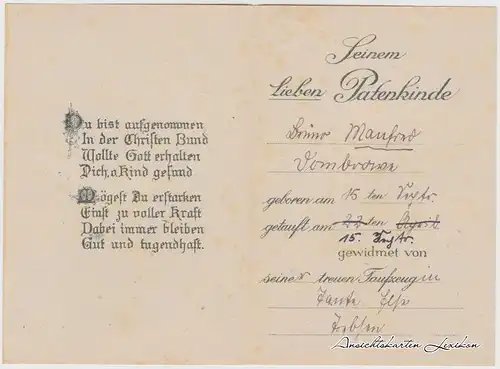 Du bist aufgenommen
In der Christen Bund
Wollte Gott erhalten
Dich, o Kind gesund
Mögest Du erstarken
Einst zu voller Kraft
Dabei immer bleiben
Gut und tugendhaft.
Seinem
lieben Patenkinde
Manfred
Dombrowe
geboren am 15 ten Septr.
getauft am 22 ten April
15. Septr.
gewidmet von
seiner treuen Taufzeugin
Tante Else
Ansichtskarten Lexikon